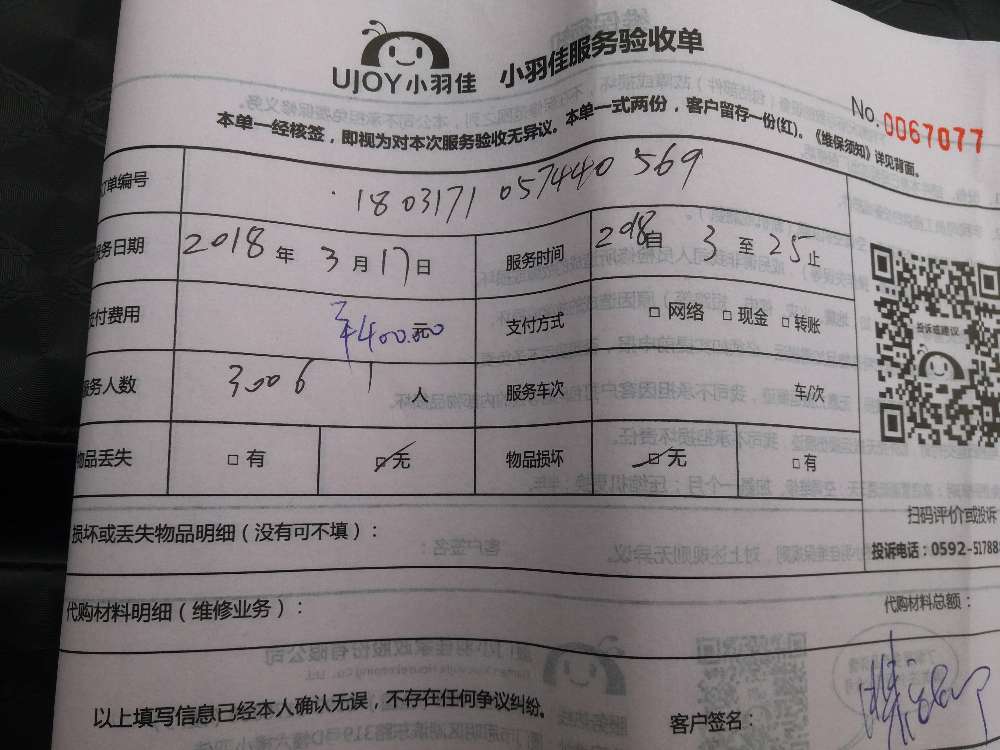 UJOY小羽佳 小羽佳服务验收单
No. 0067077
本单一经核签，即视为对本次服务验收无异议。本单一式两份，客户留存一份(红)。《维保须知》详见背面。
订单编号 180317105744 0569
服务日期 2018年3月17日 服务时间 2018自3至25止
支付费用 ¥400.00元 支付方式 □网络 □现金 □转账
服务人数 3006 1人 服务车次 车/次
物品丢失 □有 □无 物品损坏 □无 □有
投诉或建议
扫码评价或投诉
投诉电话：0592-51788
损坏或丢失物品明细（没有可不填）：
代购材料明细（维修业务）： 代购材料总额：
以上填写信息已经本人确认无误，不存在任何争议纠纷。 客户签名：